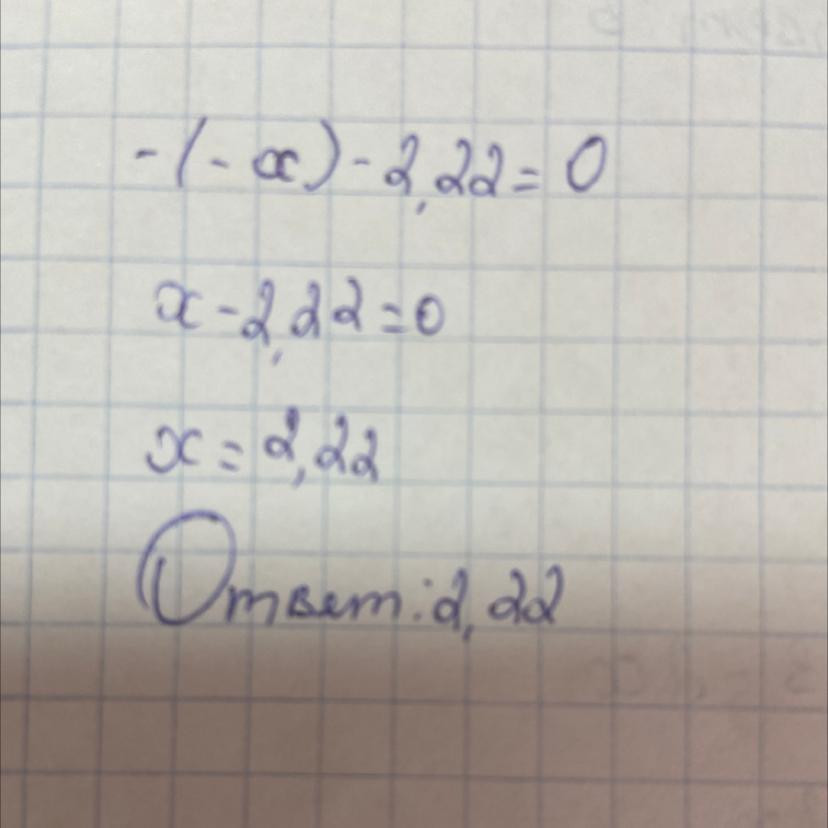 -(-x)-2,22=0
x-2,22=0
x=2,22
Ответ:2,22